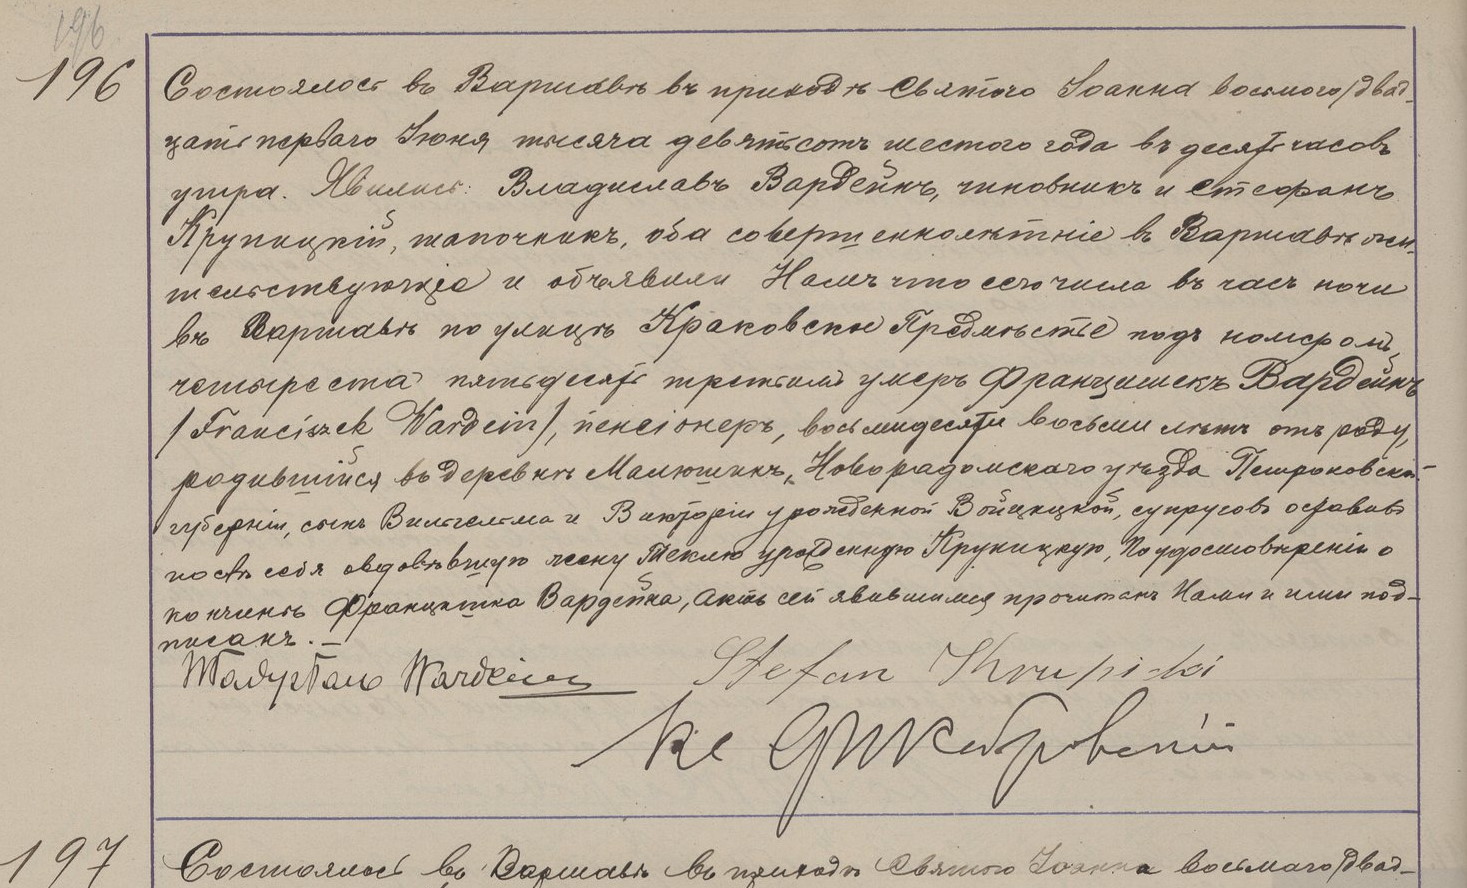 196
196
Состоялось въ Варшавѣ въ приходѣ Святого Іоанна восьмого/двад-
цать перваго Іюня тысяча девятьсотъ шестого года въ десять часовъ
утра. Явились: Владиславъ Вардейнъ, чиновникъ и Стефанъ
Крупицкій, шапочникъ, оба совершеннолѣтніе въ Варшавѣ жи-
тельствующіе и объявили Намъ что сего числа въ часъ ночи
въ Варшавѣ по улицѣ Краковское Предмѣстіе подъ номеромъ
четыреста пятьдесятъ третьимъ умеръ Францишекъ Вардейнъ
/Franciszek Wardein/, пенсіонеръ, восьмидесяти восьми лѣтъ отъ роду,
родившійся въ деревнѣ Малюшинъ, Новорадомскаго уѣзда Петроковской
губерніи, сынъ Вильгельма и Викторіи урожденной Войцицкой, супруговъ оставивъ
послѣ себя овдовѣвшую жену Теклю урожденную Крупицкую, По удостовѣреніи о
кончинѣ Францишка Вардейна, Актъ сей явившимся прочитанъ Нами и ими под-
писанъ. —
Władysław Wardein Stefan Krupicki
Кс
197
Состоялось въ Варшавѣ въ приходѣ Святого Іоанна восьмаго/двад-